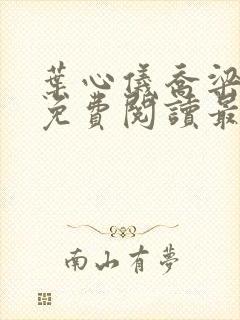 葉心儀喬梁
免費閱讀最
南山有夢